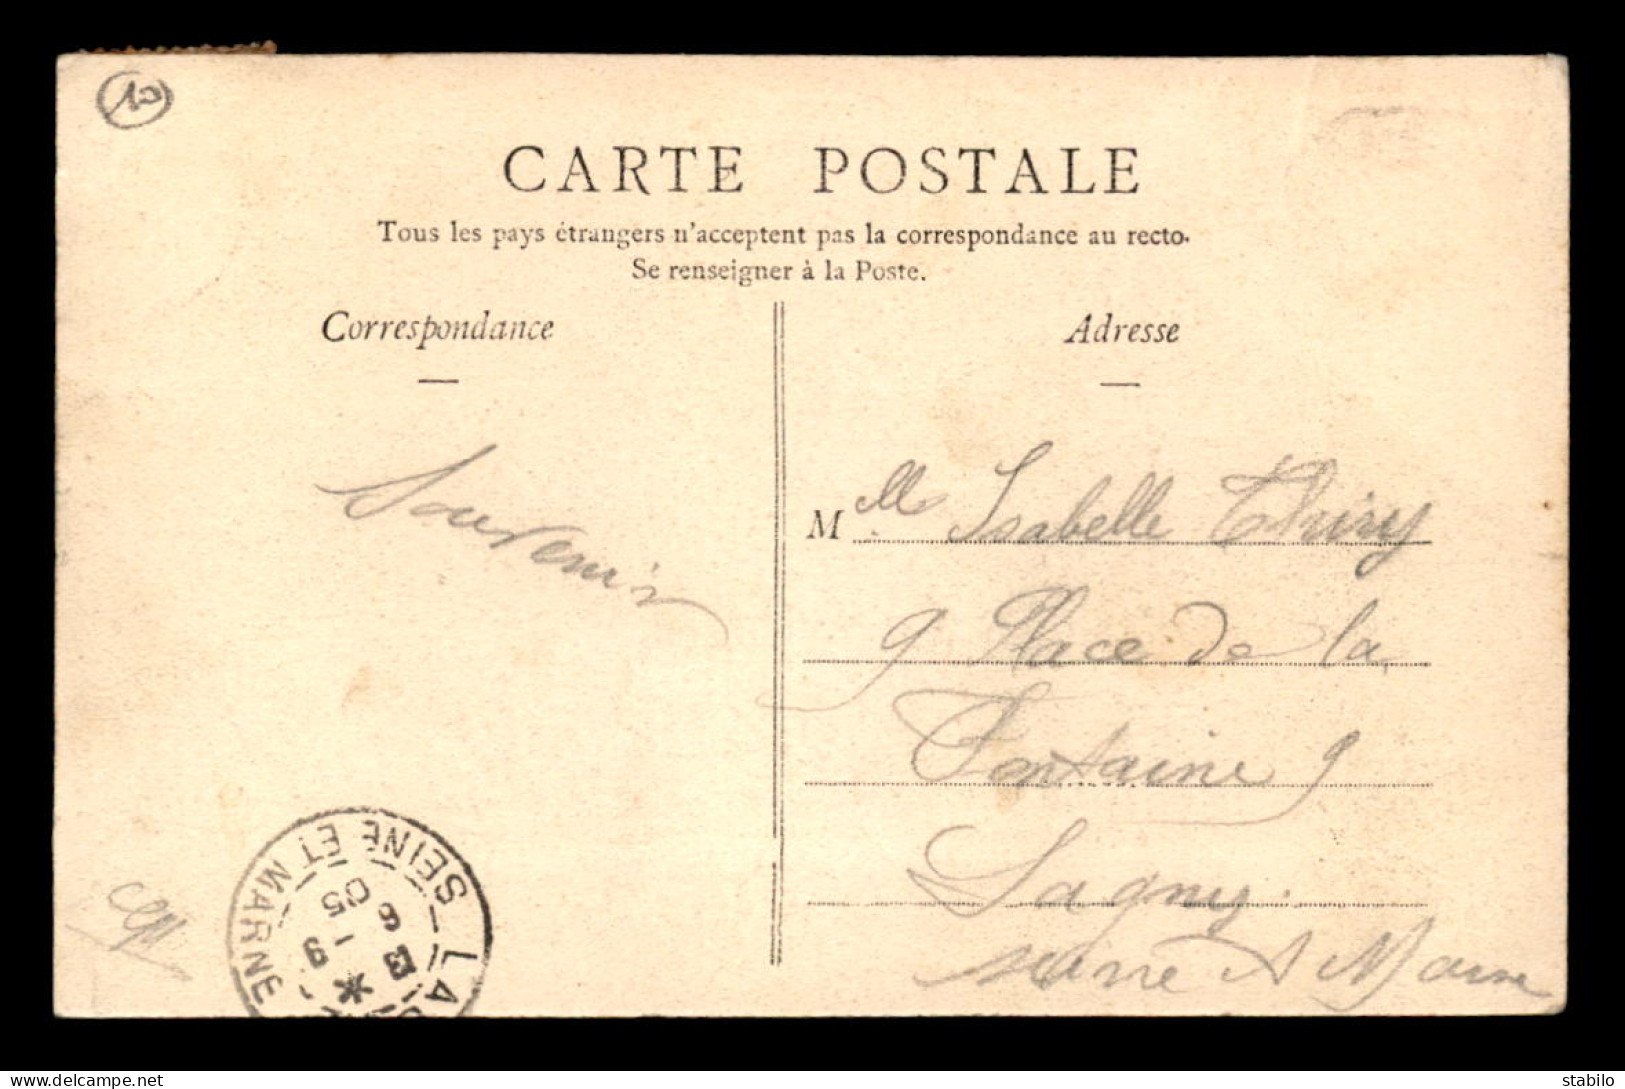 10
CARTE POSTALE
Tous les pays étrangers n'acceptent pas la correspondance au recto.
Se renseigner à la Poste.
Correspondance
Adresse
Souvenir
Mlle Isabelle Thiry
9 Place de la
Fontaine 9
Lagny
Seine et Marne
SEINE ET MARNE
LAGNY
05
www.delcampe.net
stabilo